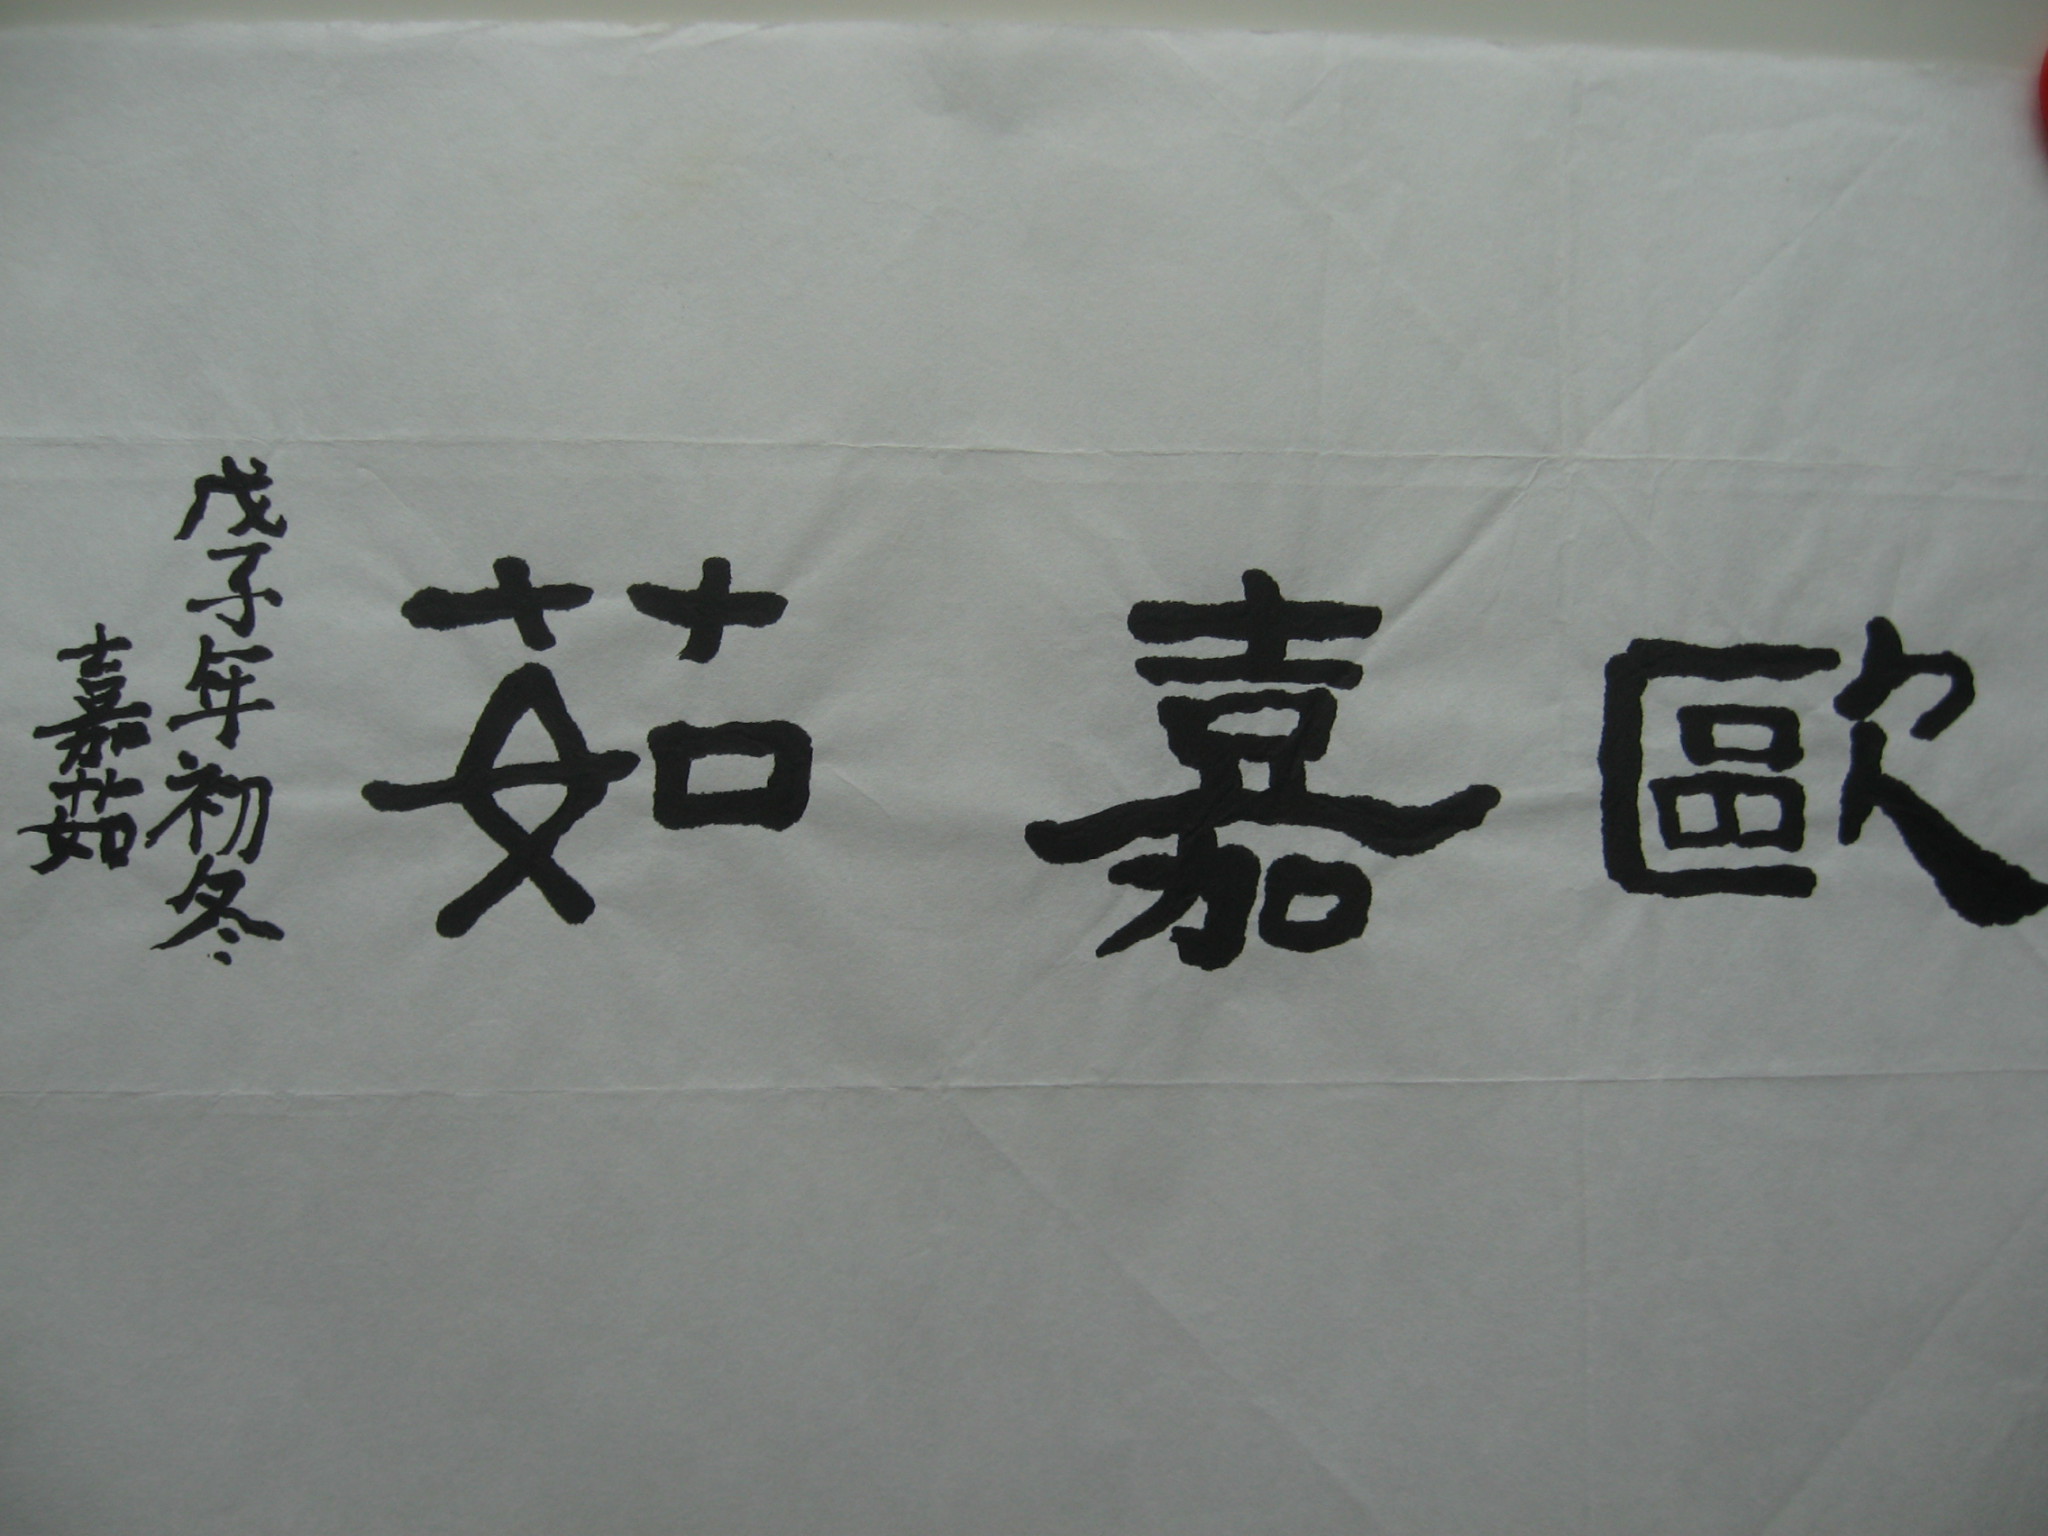 歐嘉茹
戊子年初冬
嘉茹